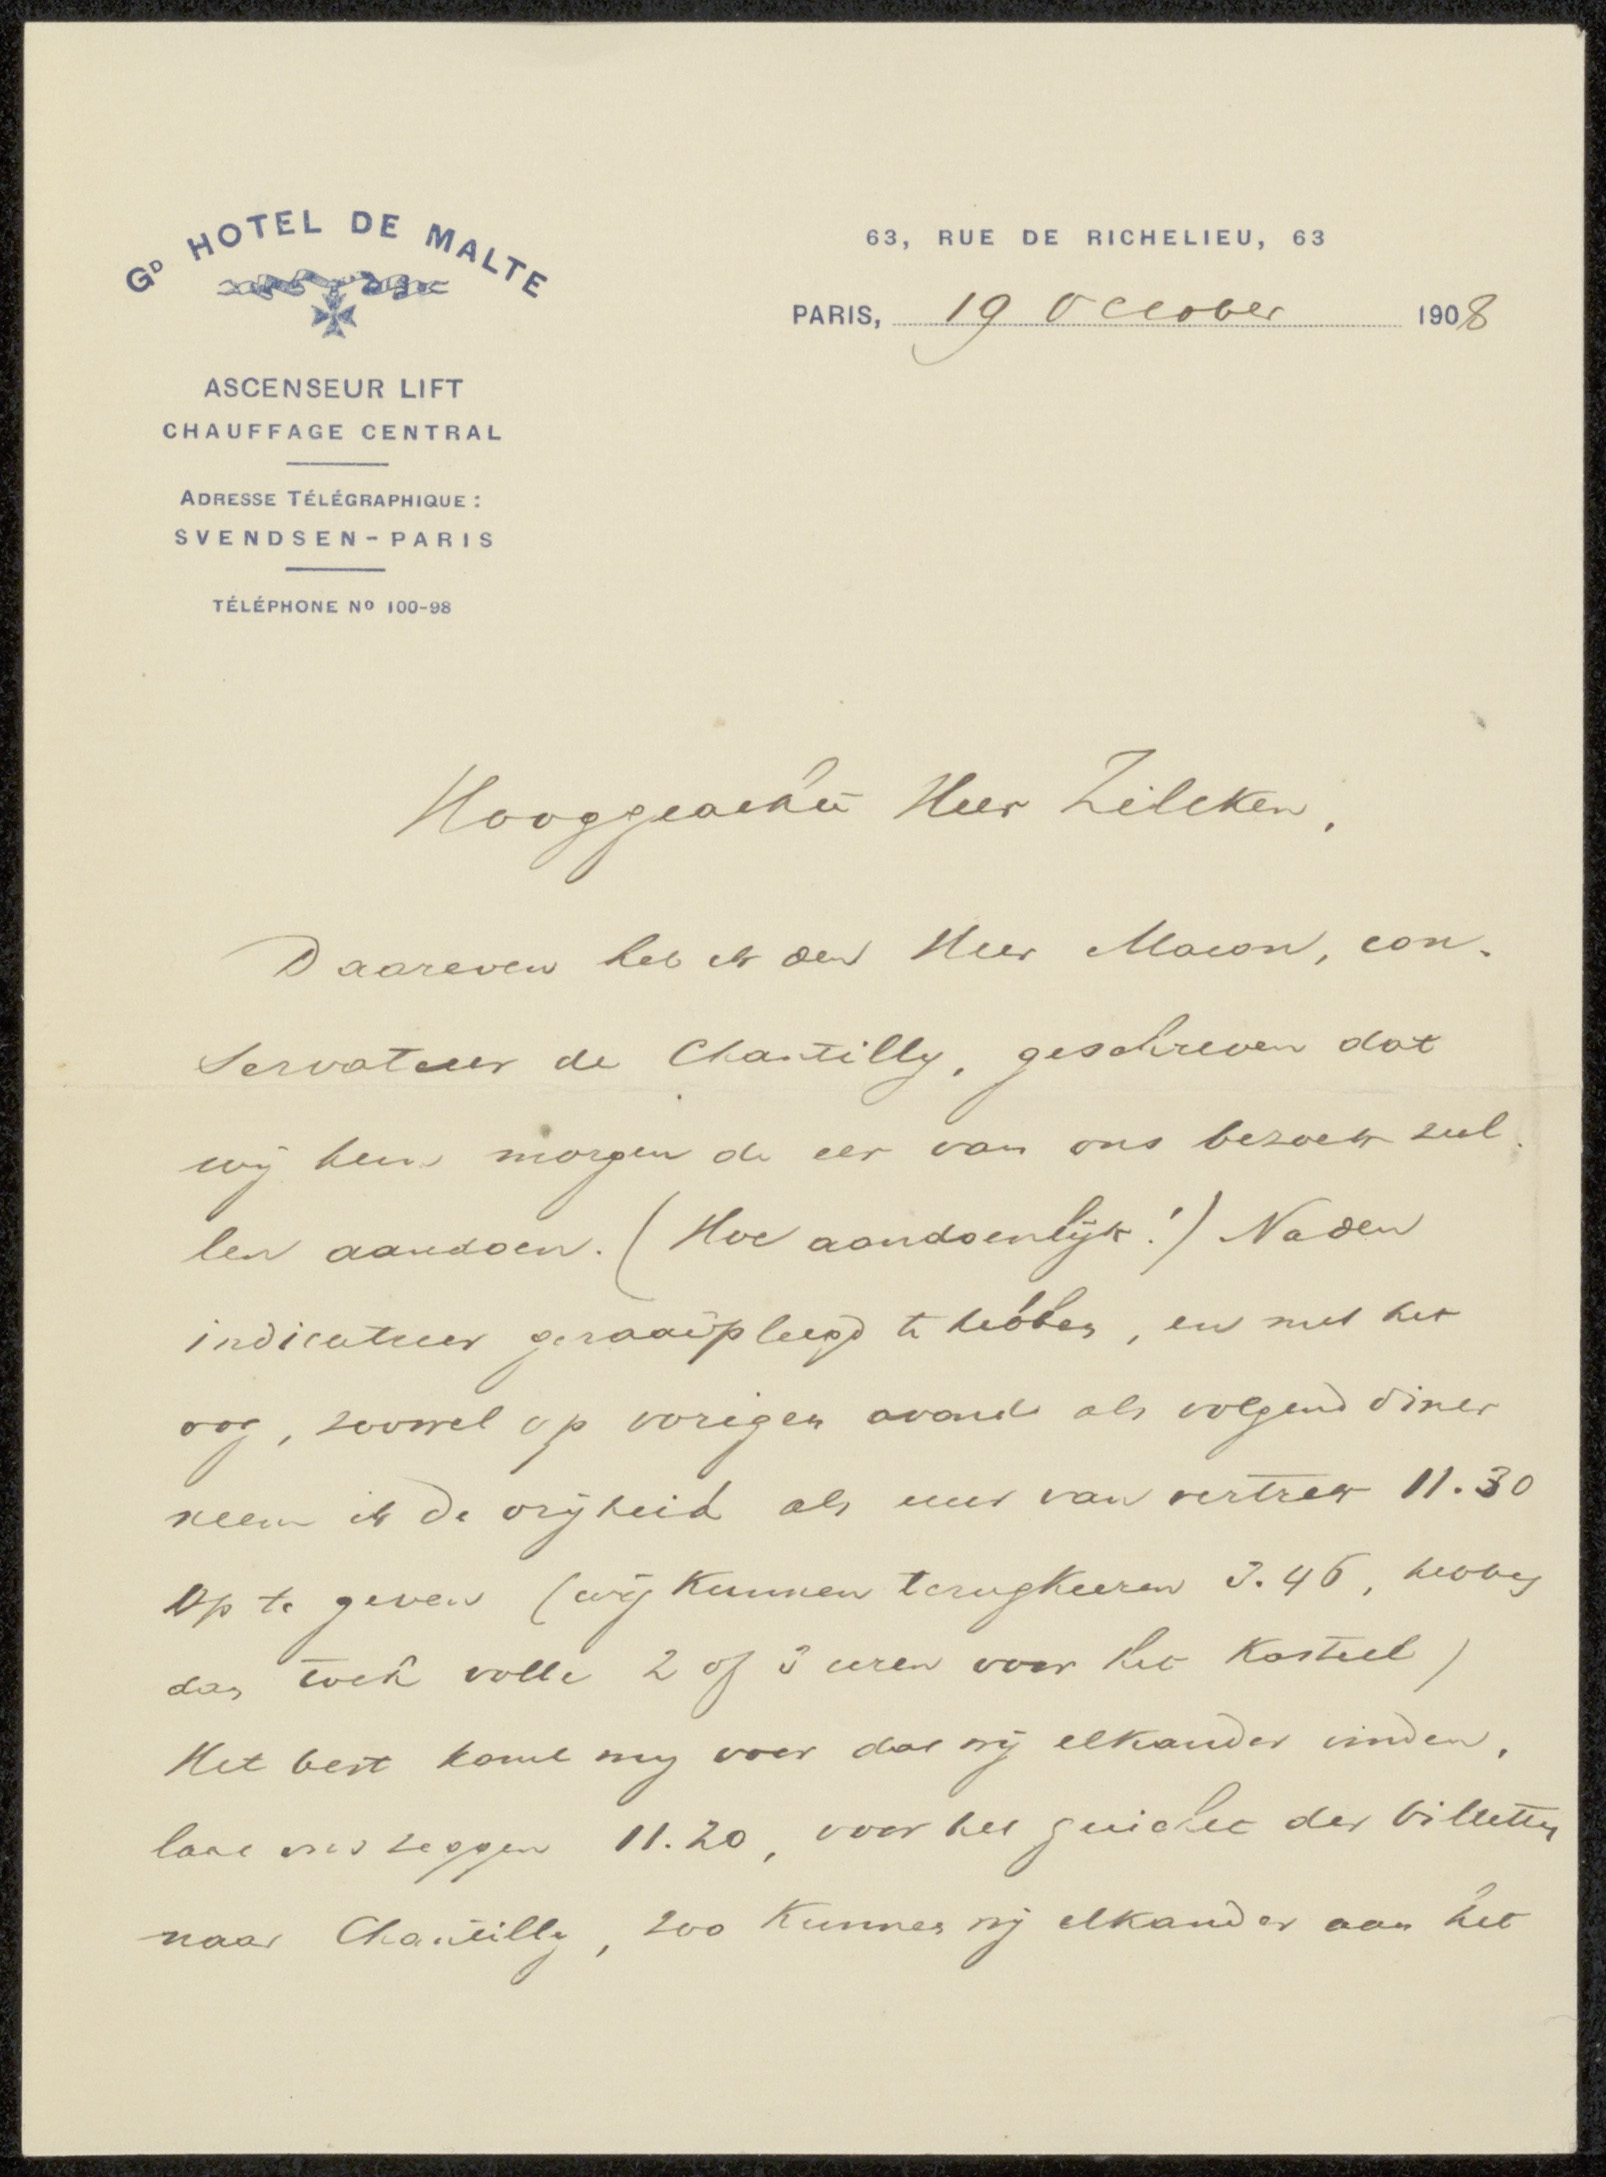 Gᴰ HOTEL DE MALTE
ASCENSEUR LIFT
CHAUFFAGE CENTRAL
ADRESSE TÉLÉGRAPHIQUE :
SVENDSEN-PARIS
TÉLÉPHONE Nº 100-98
63, RUE DE RICHELIEU, 63
PARIS, 19 October 1908
Hooggeachte Heer Zilcken,
Daareven heb ik den Heer Macon, con-
servateur de Chantilly, geschreven dat
wij hem morgen de eer van ons bezoek zul-
len aandoen. (Hoe aandoenlijk!) Na den
indicateur geraadpleegd te hebben, en met het
oog, zoowel op vorigen avond als volgend diner
neem ik de vrijheid als uur van vertrek 11.30
op te geven (wij kunnen terugkeeren 3.46, hebben
dan toch volle 2 of 3 uren voor het kasteel)
Het best komt mij voor dat wij elkander vinden,
laat ons zeggen 11.20, voor het guichet der billetten
naar Chantilly, zoo kunnen wij elkander aan het